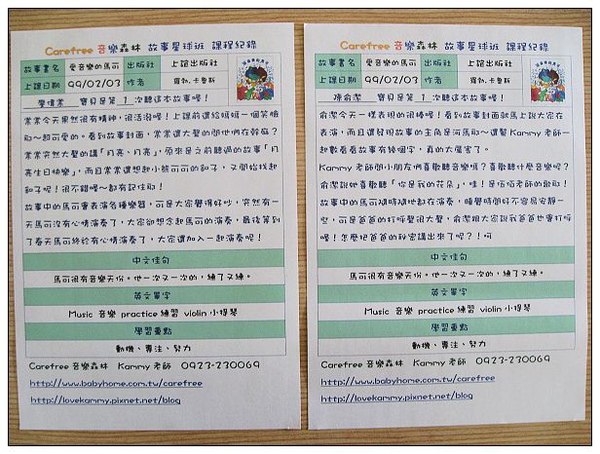 Carefree 音樂森林 故事星球班 課程紀錄
故事書名 愛音樂的馬可 出版社 上誼出版社
上課日期 99/02/03 作者 羅勃.卡魯斯
寶貝是第 1 次聽這本故事喔!
常常今天果然很有精神,很活潑喔!上課前還給媽媽一個笑臉
呢~超可愛的,看到故事封面,常常還大聲的問他們在幹麻?
常常突然大聲的講「月亮、月亮」,原來是之前聽過的故事「月
亮生日快樂」,而且常常還想起小熊可可的帽子,又開始找起
帽子呢!很不錯喔~都有記住耶!
故事中的馬可會表演各種樂器,可是大家覺得好吵,突然有一
天馬可沒有心情演奏了,大家卻想念起馬可的演奏,最後等到
了春天馬可終於有心情演奏了,大家還加入一起演奏呢!
中文佳句
馬可很有音樂天份。他一次又一次的,練了又練。
英文單字
Music 音樂 practice 練習 violin 小提琴
學習重點
動機、專注、努力
Carefree 音樂森林 Kammy 老師 0923-230069
http://www.babyhome.com.tw/carefree
http://lovekammy.pixnet.net/blog
Carefree 音樂森林 故事星球班 課程紀錄
故事書名 愛音樂的馬可 出版社 上誼出版社
上課日期 99/02/03 作者 羅勃.卡魯斯
寶貝是第 1 次聽這本故事喔!
俞潔今天一樣表現的很棒喔!看到故事封面就馬上說大家在
表演,而且還發現故事的主角是河馬耶~還幫 Kammy 老師一
起數看看故事有幾個字,真的太厲害了。
Kammy 老師問小朋友們喜歡聽音樂嗎?喜歡聽什麼音樂呢?
俞潔說她喜歡聽「你是我的花朵」,哇!是伍佰老師的歌耶!
故事中的馬可隨時隨地都在演奏,睡覺時間好不容易安靜一
些,可是爸爸的打呼聲很大聲,俞潔跟大家說我爸爸也會打呼
喔!怎麼把爸爸的秘密講出來了呢?!呵
中文佳句
馬可很有音樂天份。他一次又一次的,練了又練。
英文單字
Music 音樂 practice 練習 violin 小提琴
學習重點
動機、專注、努力
Carefree 音樂森林 Kammy 老師 0923-230069
http://www.babyhome.com.tw/carefree
http://lovekammy.pixnet.net/blog